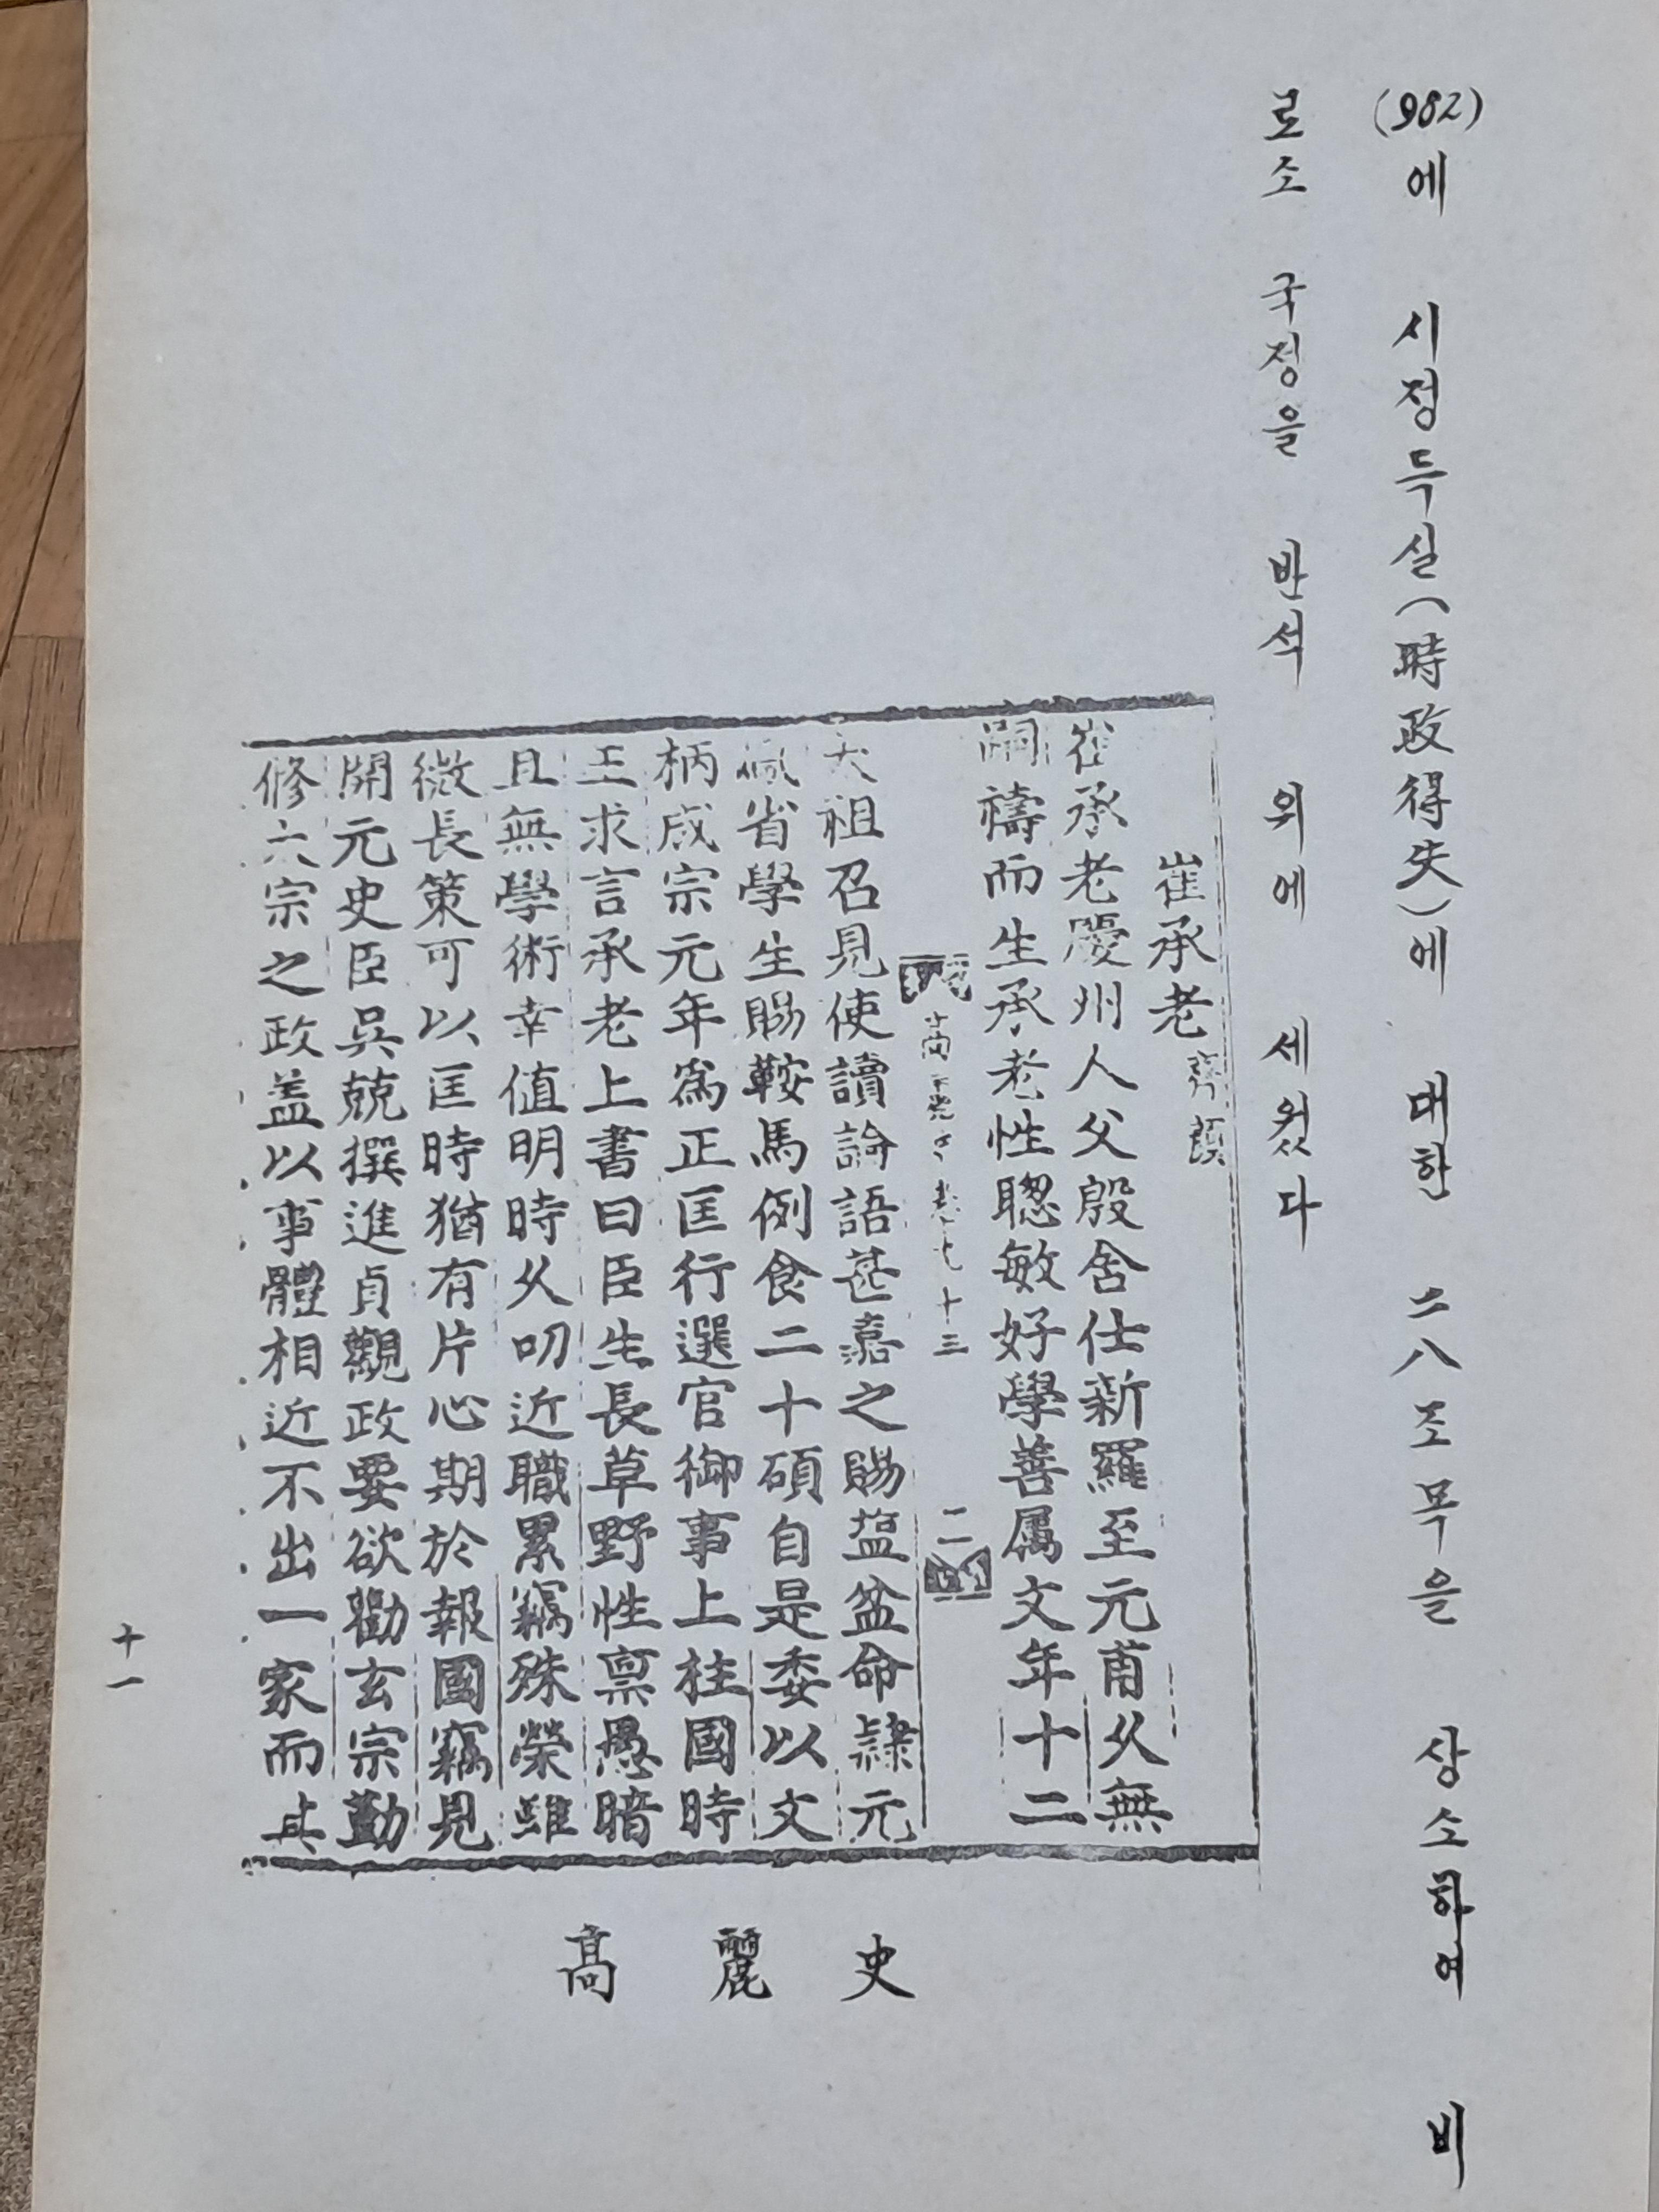 (982)에 시정득실(時政得失)에 대한 二八조목을 상소하여 비
로소 국정을 반석 위에 세웠다
崔承老 齊顔
崔承老慶州人父殷含仕新羅至元甫久無
嗣禱而生承老性聰敏好學善属文年十二
高麗史 卷九十三 二
太祖召見使讀論語甚嘉之賜盐盆命隷元
鳳省學生賜鞍馬例食二十碩自是委以文
柄成宗元年爲正匡行選官御事上柱國時
王求言承老上書曰臣生長草野性禀愚暗
且無學術幸值明時久叨近職累竊殊榮雖
微長策可以匡時猶有片心期於報國竊見
開元史臣吳兢撰進貞觀政要欲勸玄宗勤
修太宗之政盖以事體相近不出一家而其
高麗史
十一